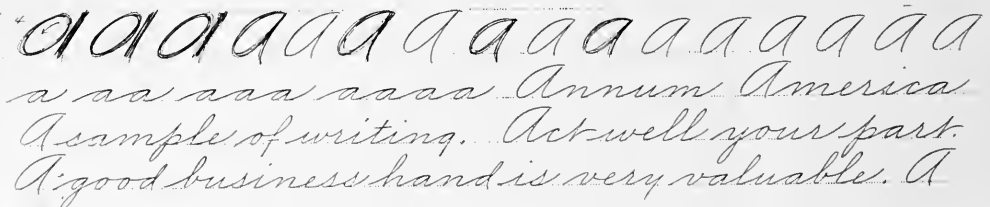 A A A A A A A A A A A A A A A A
a aa aaa aaaa Annum America
A sample of writing. Act well your part.
A good business hand is very valuable. A